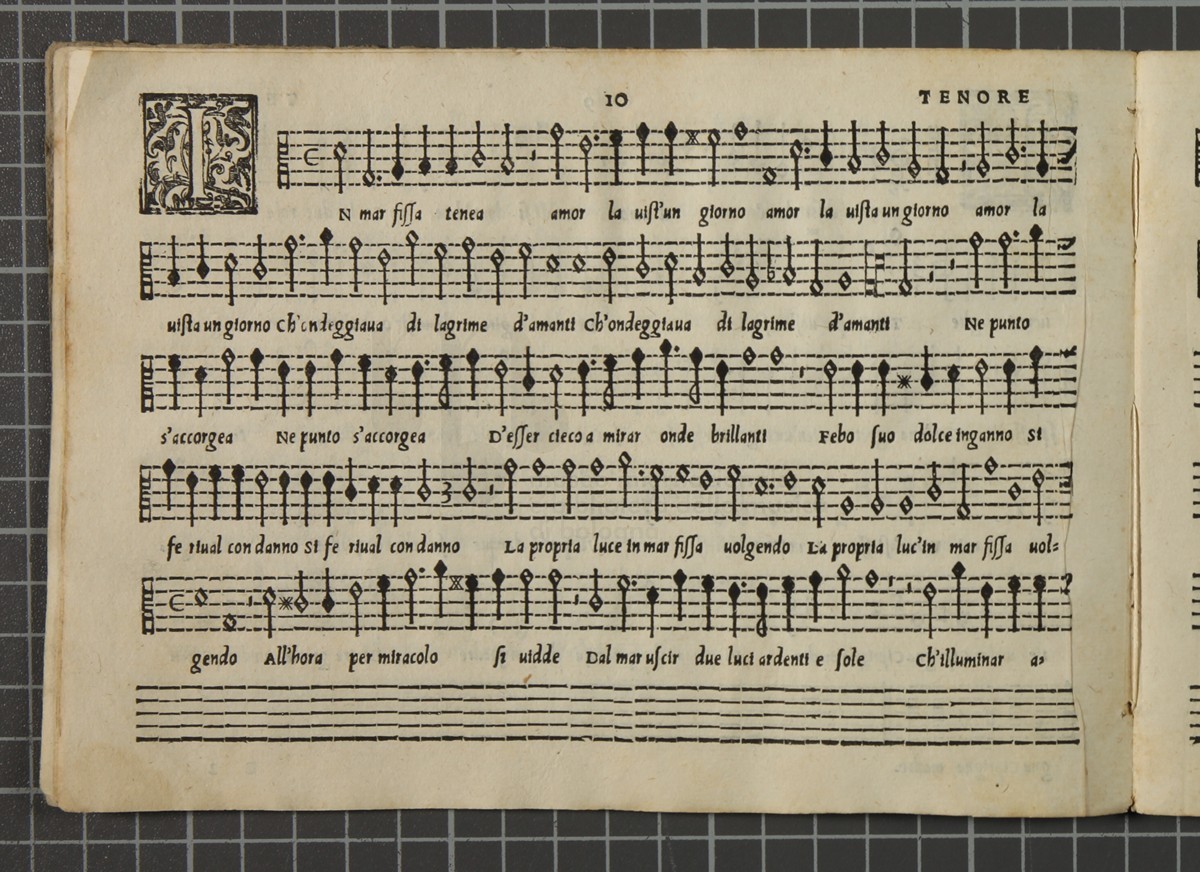 10 TENORE
IN mar fissa tenea amor la uist'un giorno amor la uista un giorno amor la
uista un giorno Ch'ondeggiaua di lagrime d'amanti Ch'ondeggiaua di lagrime d'amanti Ne punto
s'accorgea Ne punto s'accorgea D'esser cieco a mirar onde brillanti Febo suo dolce inganno si
fe riual con danno Si fe riual con danno La propria luce in mar fissa uolgendo La propria luc'in mar fissa uol=
gendo All'hora per miracolo si uidde Dal mar uscir due luci ardenti e sole Ch'illuminar a=